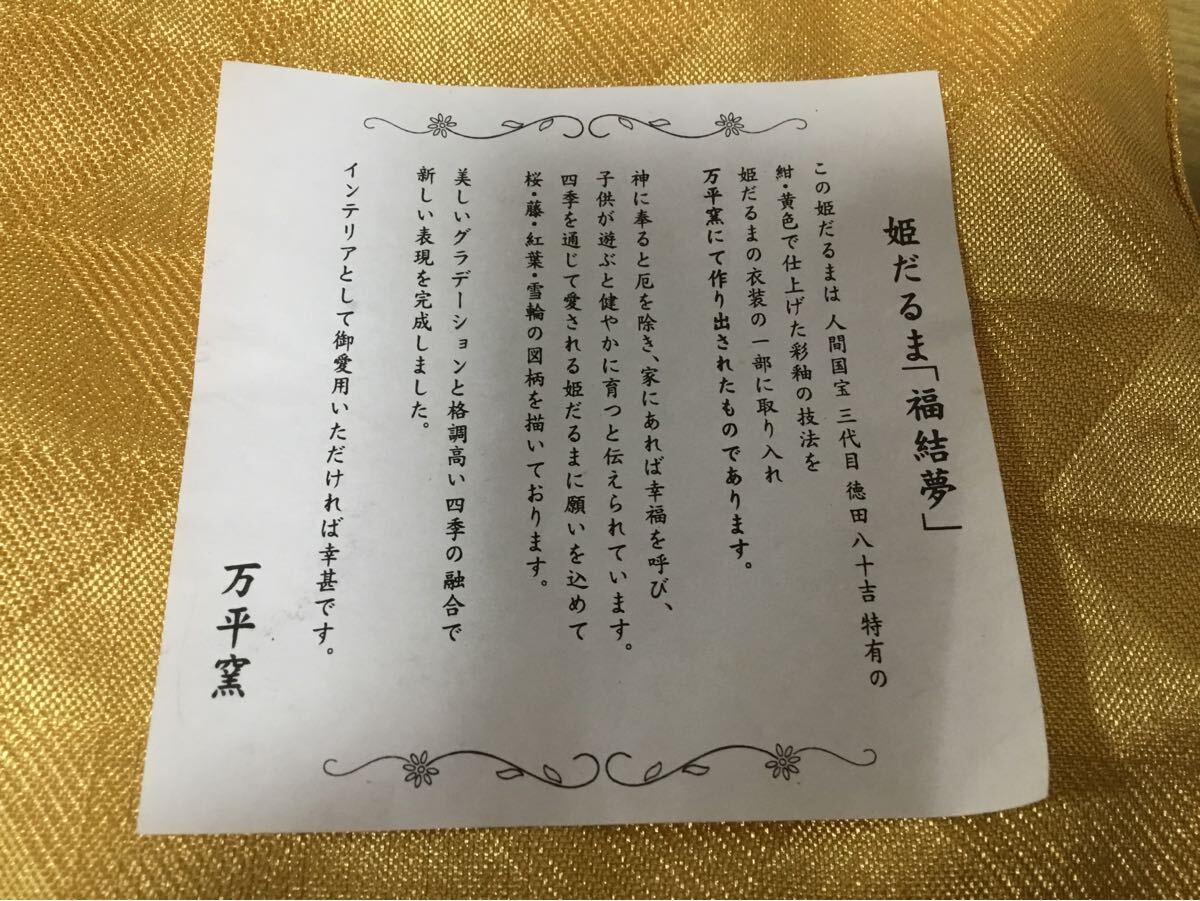 姫だるま「福結夢」
この姫だるまは 人間国宝 三代目 徳田八十吉 特有の
紺・黄色で仕上げた彩釉の技法を
姫だるまの衣装の一部に取り入れ
万平窯にて作り出されたものであります。
神に奉ると厄を除き、家にあれば幸福を呼び、
子供が遊ぶと健やかに育つと伝えられています。
四季を通じて愛される姫だるまに願いを込めて
桜・藤・紅葉・雪輪の図柄を描いております。
美しいグラデーションと格調高い四季の融合で
新しい表現を完成しました。
インテリアとして御愛用いただければ幸甚です。
万平窯